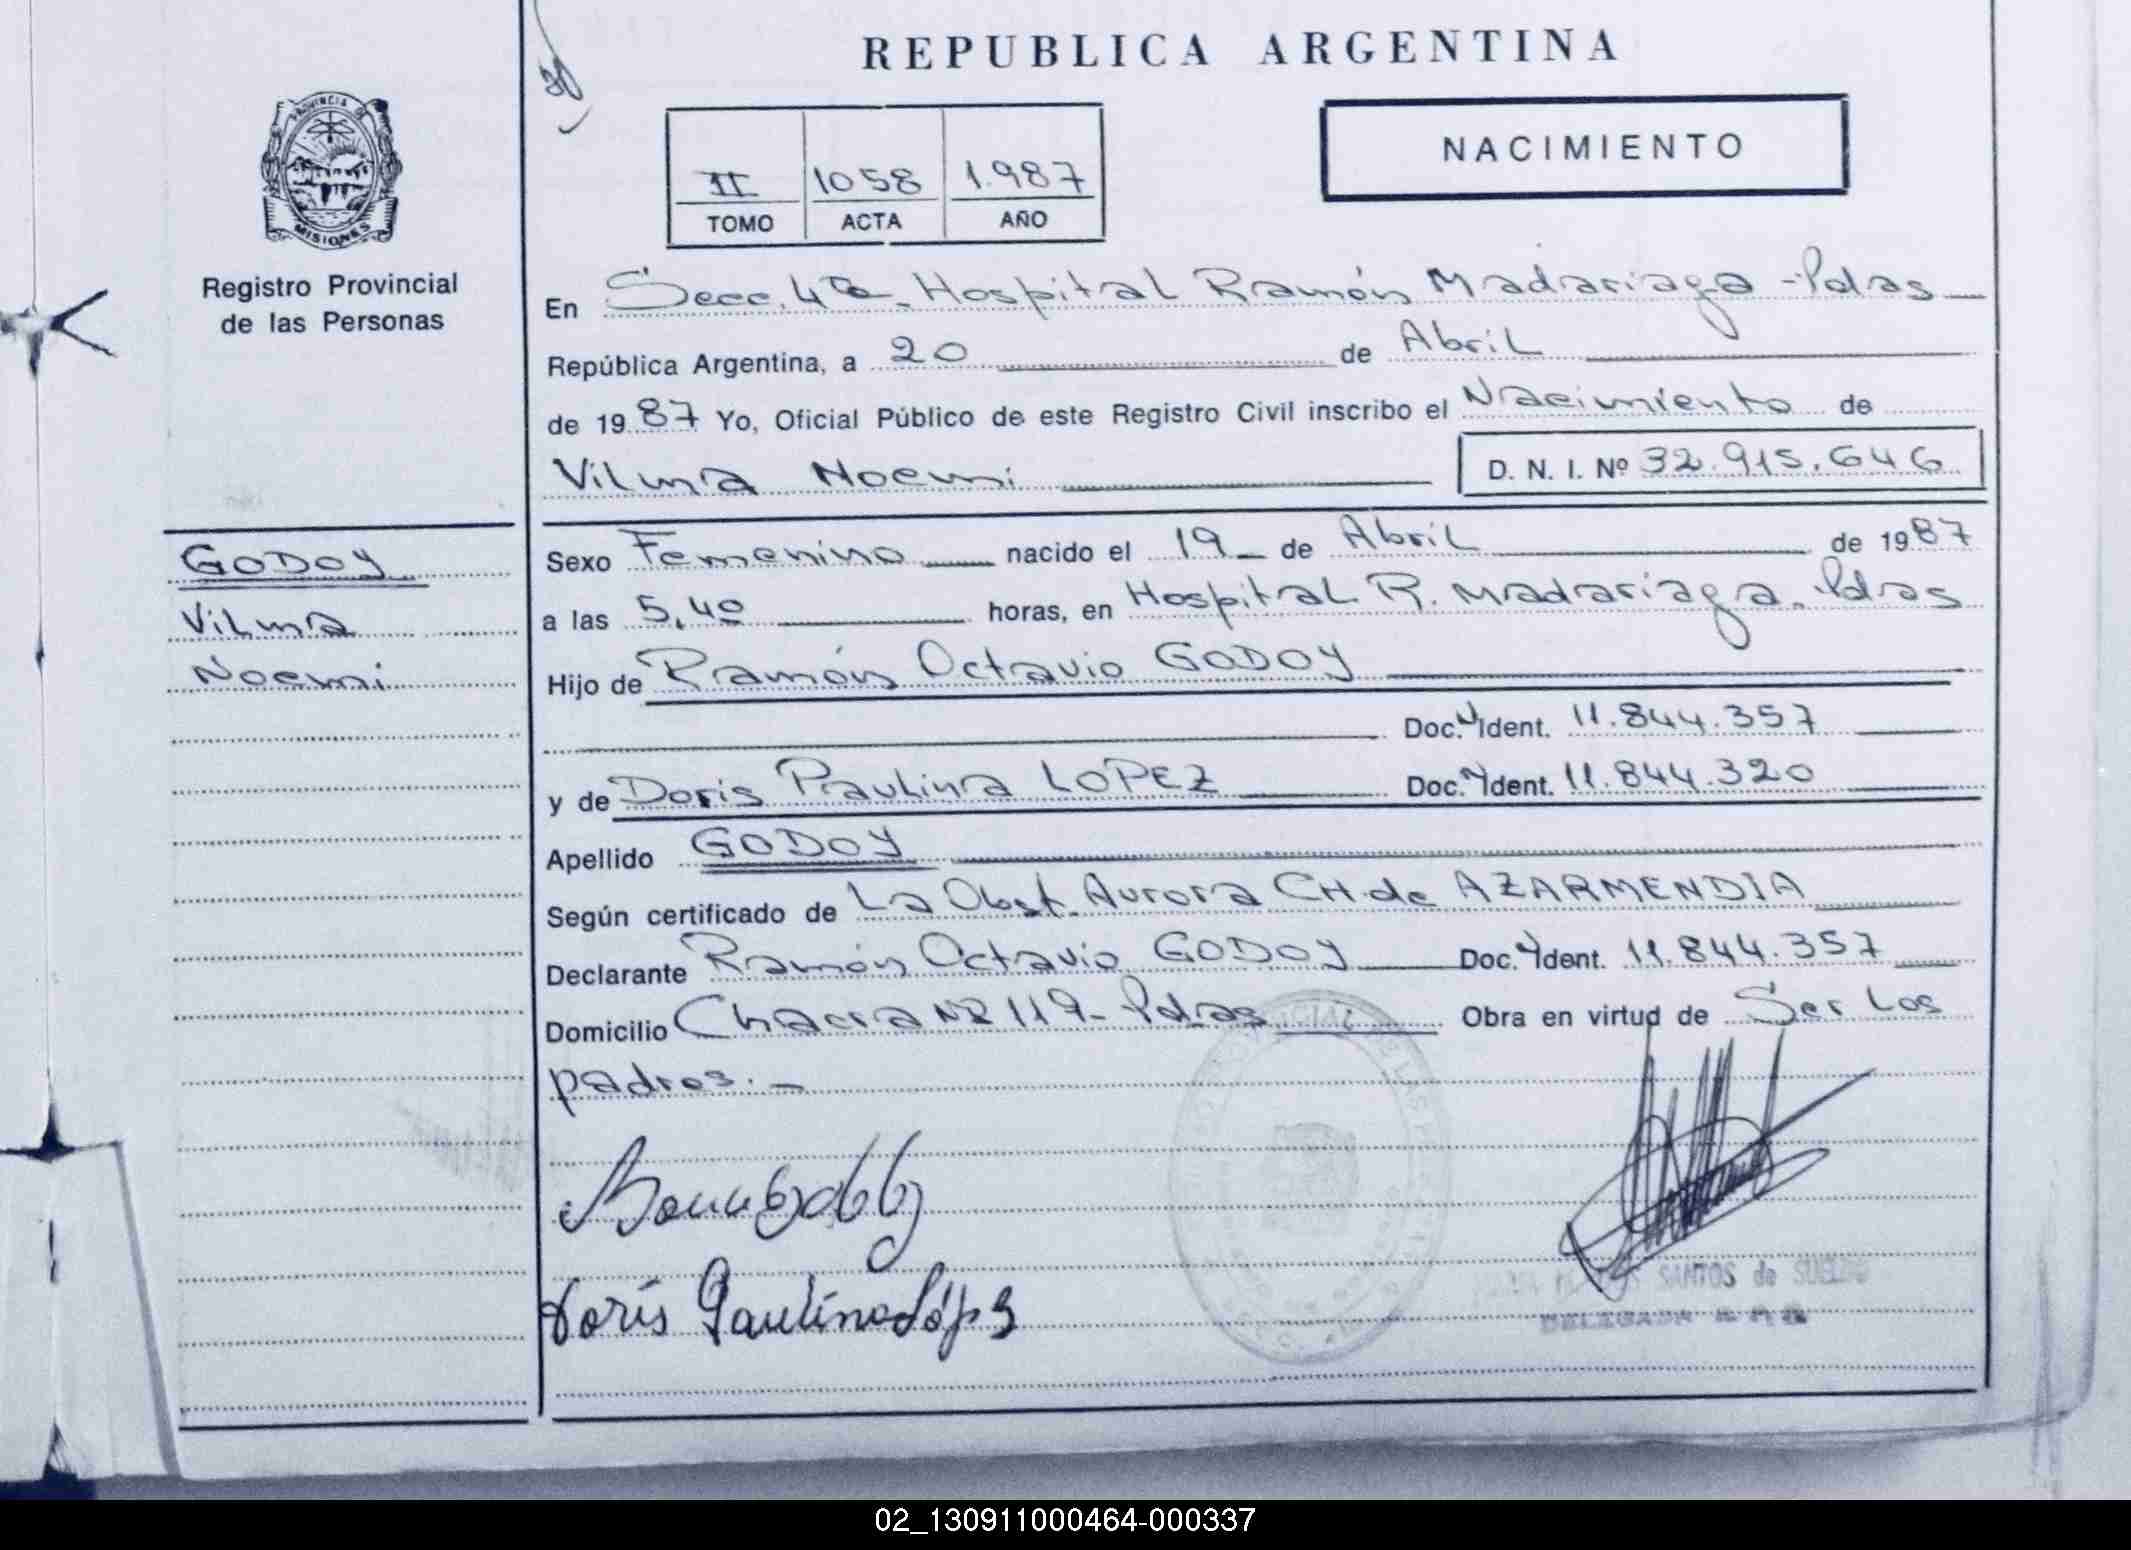 REPUBLICA ARGENTINA
30
PROVINCIA
MISIONES
Registro Provincial
de las Personas
II 1058 1.987
TOMO ACTA AÑO
NACIMIENTO
En Secc. 4ta. Hospital Ramón Madariaga - Pdas
República Argentina, a 20 de Abril
de 1987 Yo, Oficial Público de este Registro Civil inscribo el Nacimiento de
Vilma Noemi D. N. I. Nº 32.915.646
GODOY
Vilma
Noemi
Sexo Femenino nacido el 19 de Abril de 1987
a las 5,40 horas, en Hospital R. Madariaga. Pdas
Hijo de Ramón Octavio GODOY
Doc. Ident. 11.844.357
y de Doris Paulina LOPEZ Doc. Ident. 11.844.320
Apellido GODOY
Según certificado de La Obst. Aurora CH. de AZARMENDIA
Declarante Ramón Octavio GODOY Doc. Ident. 11.844.357
Domicilio Chacra Nº 119 - Pdas Obra en virtud de Ser Los
padres. -
Doris Paulina López
SANTOS de SUELDO
DELEGADA
02_130911000464-000337